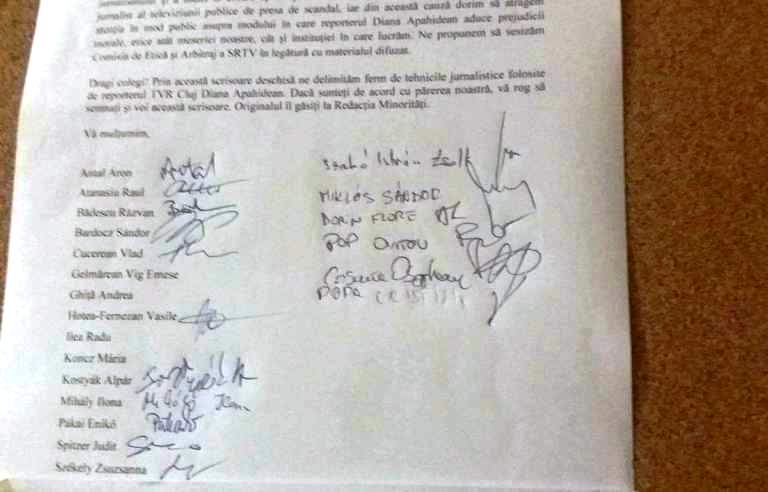 jurnalist al televiziunii publice de presa de scandal, iar din această cauză dorim să atragem
atenția în mod public asupra modului în care reporterul Diana Apahidean aduce prejudicii
morale, etice atât meseriei noastre, cât și instituției în care lucrăm. Ne propunem să sesizăm
Comisia de Etică și Arbitraj a SRTV în legătură cu materialul difuzat.
Dragi colegi! Prin această scrisoare deschisă ne delimităm ferm de tehnicile jurnalistice folosite
de reporterul TVR Cluj Diana Apahidean. Dacă sunteți de acord cu părerea noastră, vă rog să
semnați și voi această scrisoare. Originalul îl găsiți la Redacția Minorități.
Vă mulțumim,
Antal Aron Antal
Atanasiu Raul
Bădescu Răzvan
Bardocz Sándor
Cucerean Vlad
Gelmărean Vig Emese
Ghiță Andrea
Hotea-Fernezan Vasile
Ilea Radu
Koncz Mária
Kostyák Alpár
Mihály Ilona
Pakai Enikő
Spitzer Judit
Székely Zsuzsanna
Szabó
MIKLÓS SÁNDOR
DORIN FLORE
POP
POPA